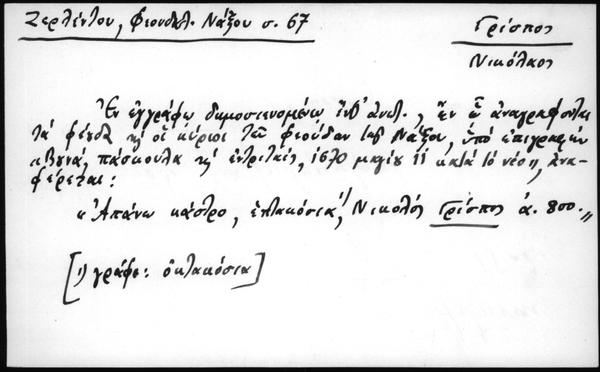 Ζερλέντου, Φεουδαλ. Νάξου σ. 67
Γρίσπος
Νικόλαος
Ἐν ἐγγράφῳ δημοσιευομένῳ ἐνθ' ἀνωτ., ἐν ᾧ ἀναγράφονται
τά φέουδα καί οἱ κύριοι τῶν φεούδων τῆς Νάξου, ὑπό ἐπιγραφήν
«Βουνά, πάσκουλα καί ἐντριταίς, 1670 μαγίου 11 κατά τό νέο», ἀνα-
φέρεται:
«Ἀπάνω κάστρο, ἑπτακόσια¹⁾, Νικολός Γρίσπος ἀ. 800.»
[1) γράφε: ὀκτακόσια]